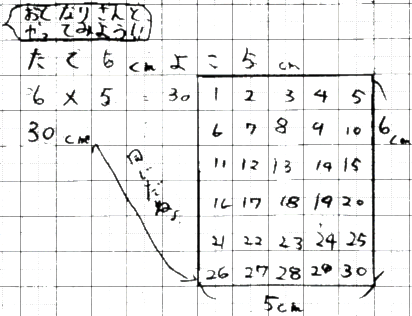 おとなりさんと
やってみよう!!
たて6cmよこ5cm
6×5=30
30cm
同じだね。
1 2 3 4 5
6 7 8 9 10
11 12 13 14 15
16 17 18 19 20
21 22 23 24 25
26 27 28 29 30
6cm
5cm